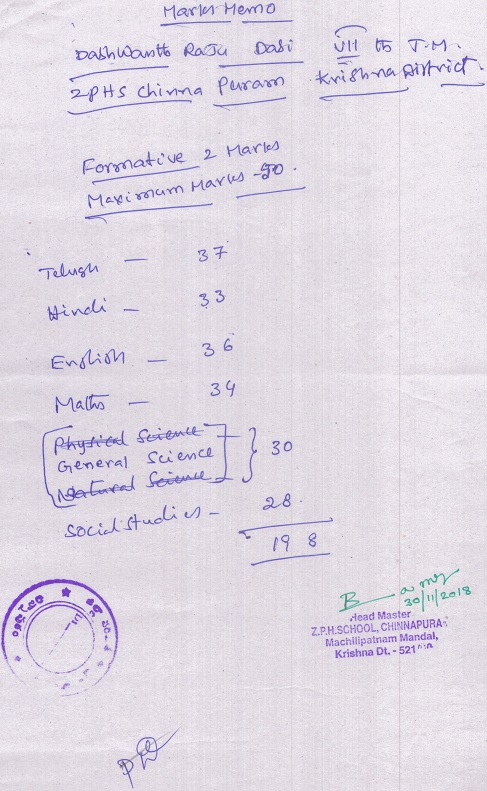 Marks Memo
Dashwanth Raju Dasi VII th T.M.
ZPHS Chinna Puram Krishna District.
Formative 2 Marks
Maximum Marks - 50.
Telugu — 37
Hindi — 33
English — 36
Maths — 34
Physical Science
General Science 30
Natural Science
Social Studies - 28.
198
30/11/2018
Head Master
Z.P.H.SCHOOL, CHINNAPURA
Machilipatnam Mandal,
Krishna Dt. - 521